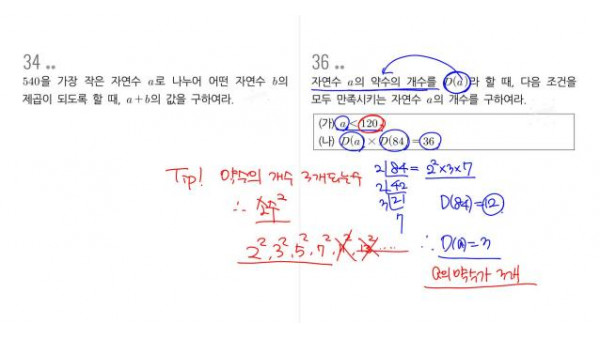 34
540을 가장 작은 자연수 a로 나누어 어떤 자연수 b의
제곱이 되도록 할 때, a+b의 값을 구하여라.
36
자연수 a의 약수의 개수를 D(a)라 할 때, 다음 조건을
모두 만족시키는 자연수 a의 개수를 구하여라.
(가) a<120
(나) D(a)×D(84)=36
Tip! 약수의 개수 3개되는수
∴ 소수²
2², 3², 5², 7², 11², 13² ....
2 84 = 2²×3×7
2 42
3 21
7
D(84)=12
∴ D(a)=3
a의 약수가 3개